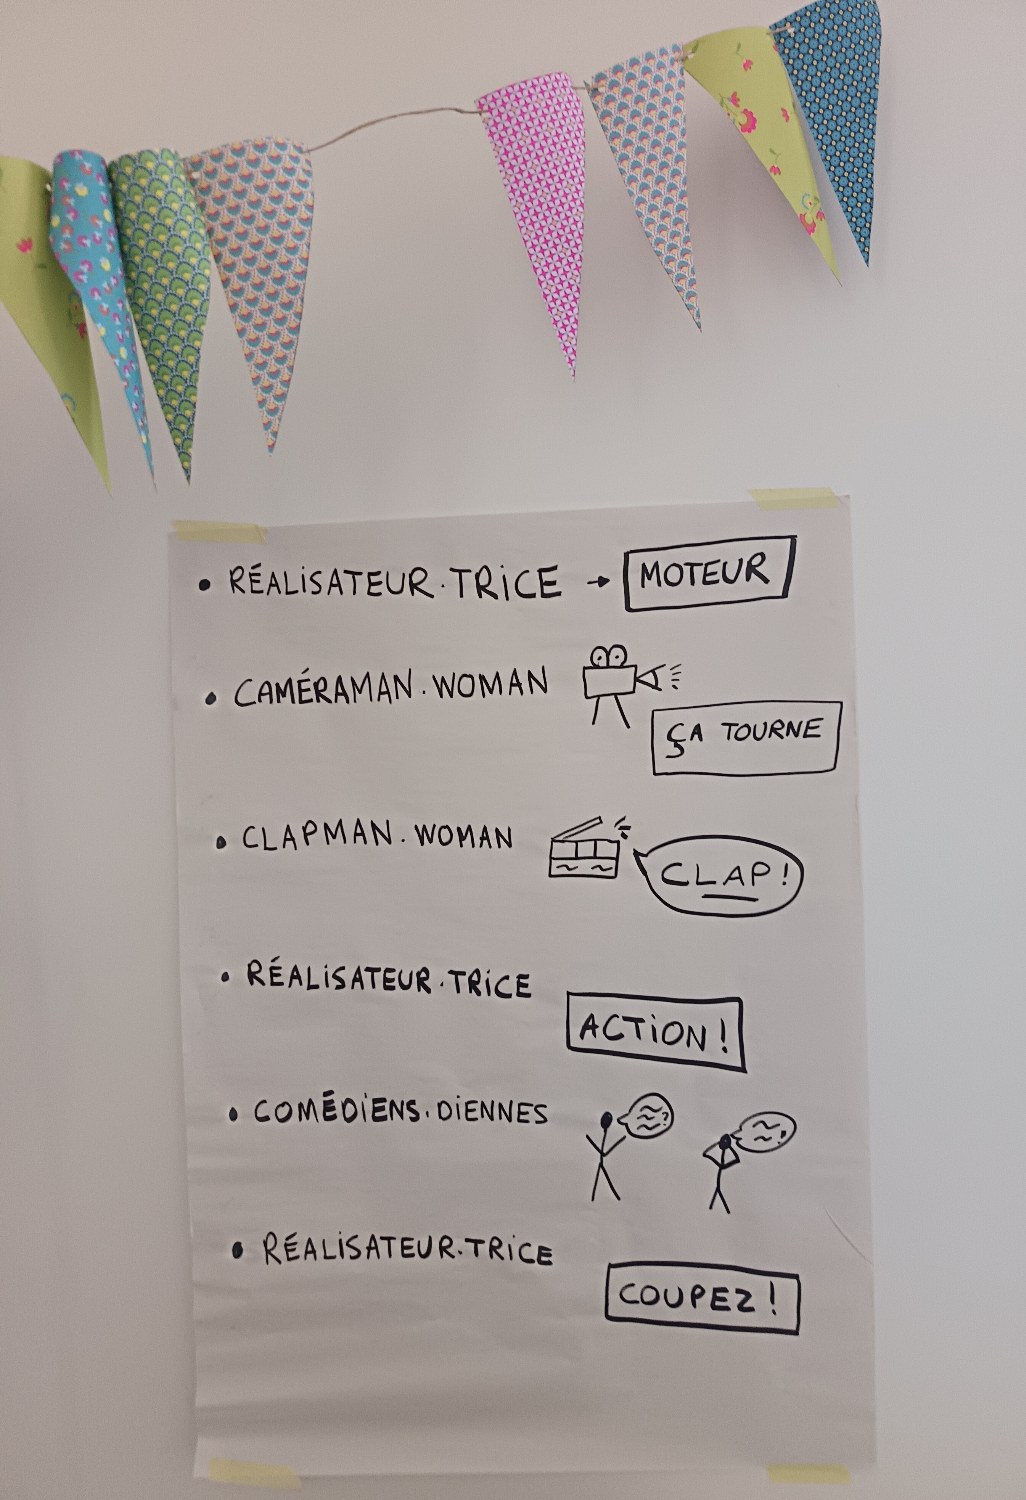 • RÉALISATEUR.TRICE → MOTEUR
• CAMÉRAMAN.WOMAN
ÇA TOURNE
• CLAPMAN.WOMAN
CLAP !
• RÉALISATEUR.TRICE
ACTION !
• COMÉDIENS.DIENNES
• RÉALISATEUR.TRICE
COUPEZ !